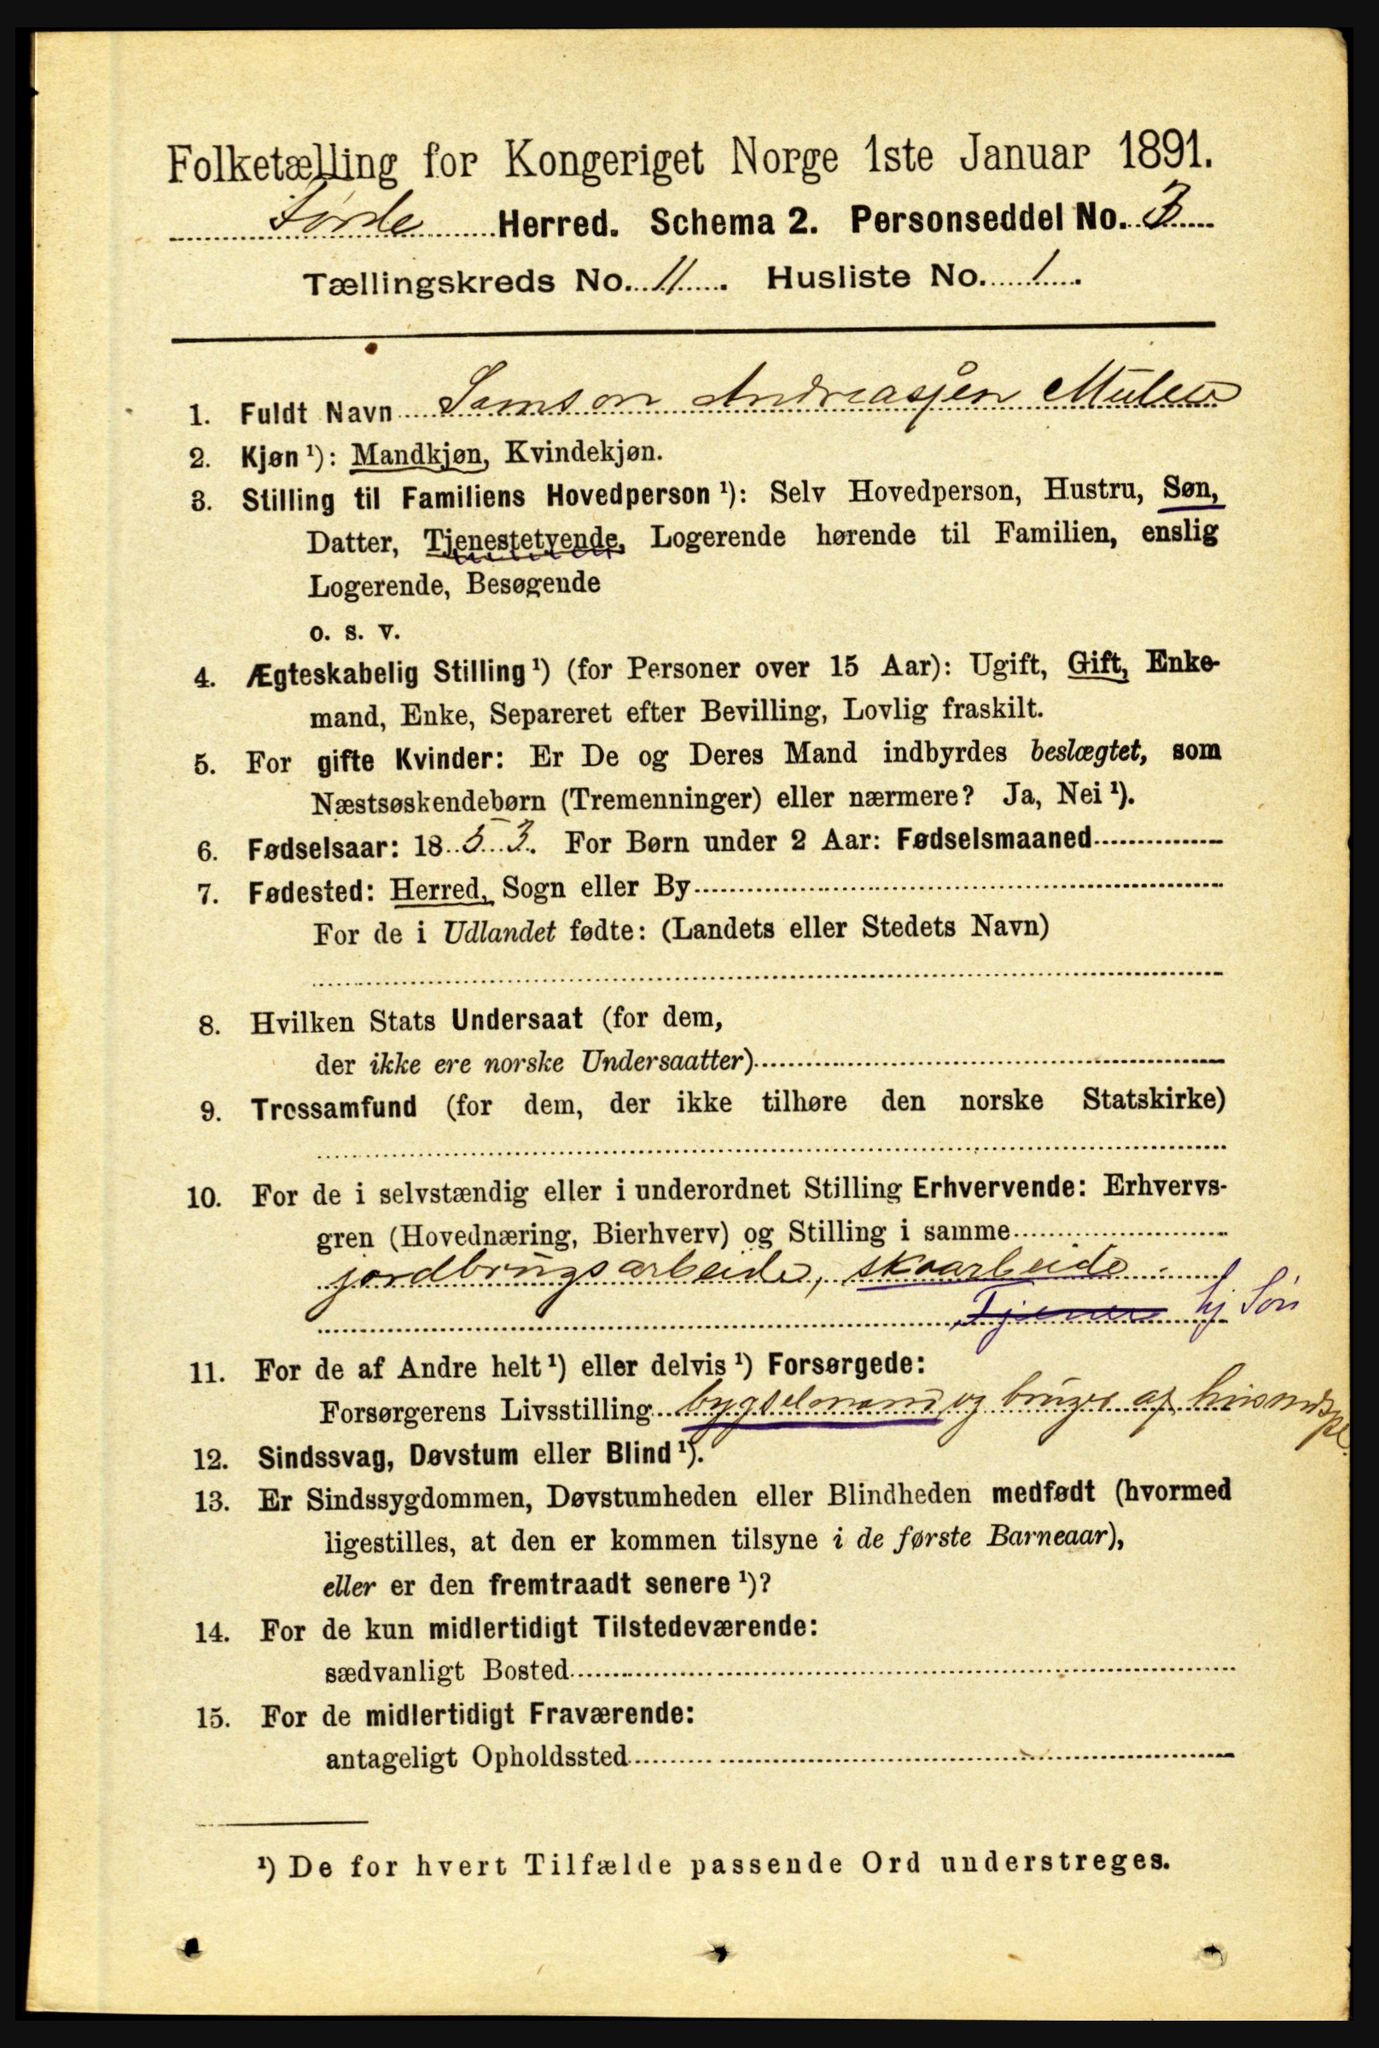 Folketælling for Kongeriget Norge 1ste Januar 1891.
Førde Herred. Schema 2. Personseddel No. 3
Tællingskreds No. 11. Husliste No. 1.
1. Fuldt Navn Samson Andreasjen
2. Kjøn ¹): Mandkjøn, Kvindekjøn.
3. Stilling til Familiens Hovedperson ¹): Selv Hovedperson, Hustru, Søn,
Datter, Tjenestetyende, Logerende hørende til Familien, enslig
Logerende, Besøgende
o. s. v.
4. Ægteskabelig Stilling ¹) (for Personer over 15 Aar): Ugift, Gift, Enke-
mand, Enke, Separeret efter Bevilling, Lovlig fraskilt.
5. For gifte Kvinder: Er De og Deres Mand indbyrdes beslægtet, som
Næstsøskendebørn (Tremenninger) eller nærmere? Ja, Nei ¹).
6. Fødselsaar: 1853. For Børn under 2 Aar: Fødselsmaaned
7. Fødested: Herred, Sogn eller By
For de i Udlandet fødte: (Landets eller Stedets Navn)
8. Hvilken Stats Undersaat (for dem,
der ikke ere norske Undersaatter)
9. Trossamfund (for dem, der ikke tilhøre den norske Statskirke)
10. For de i selvstændig eller i underordnet Stilling Erhvervende: Erhvervs-
gren (Hovednæring, Bierhverv) og Stilling i samme
jordbrugsarbeide, skoarbeide.
Tjener hj Søn
11. For de af Andre helt ¹) eller delvis ¹) Forsørgede:
Forsørgerens Livsstilling bygselmand og bruger af husmdspl.
12. Sindssvag, Døvstum eller Blind ¹).
13. Er Sindssygdommen, Døvstumheden eller Blindheden medfødt (hvormed
ligestilles, at den er kommen tilsyne i de første Barneaar),
eller er den fremtraadt senere ¹)?
14. For de kun midlertidigt Tilstedeværende:
sædvanligt Bosted
15. For de midlertidigt Fraværende:
antageligt Opholdssted
¹) De for hvert Tilfælde passende Ord understreges.